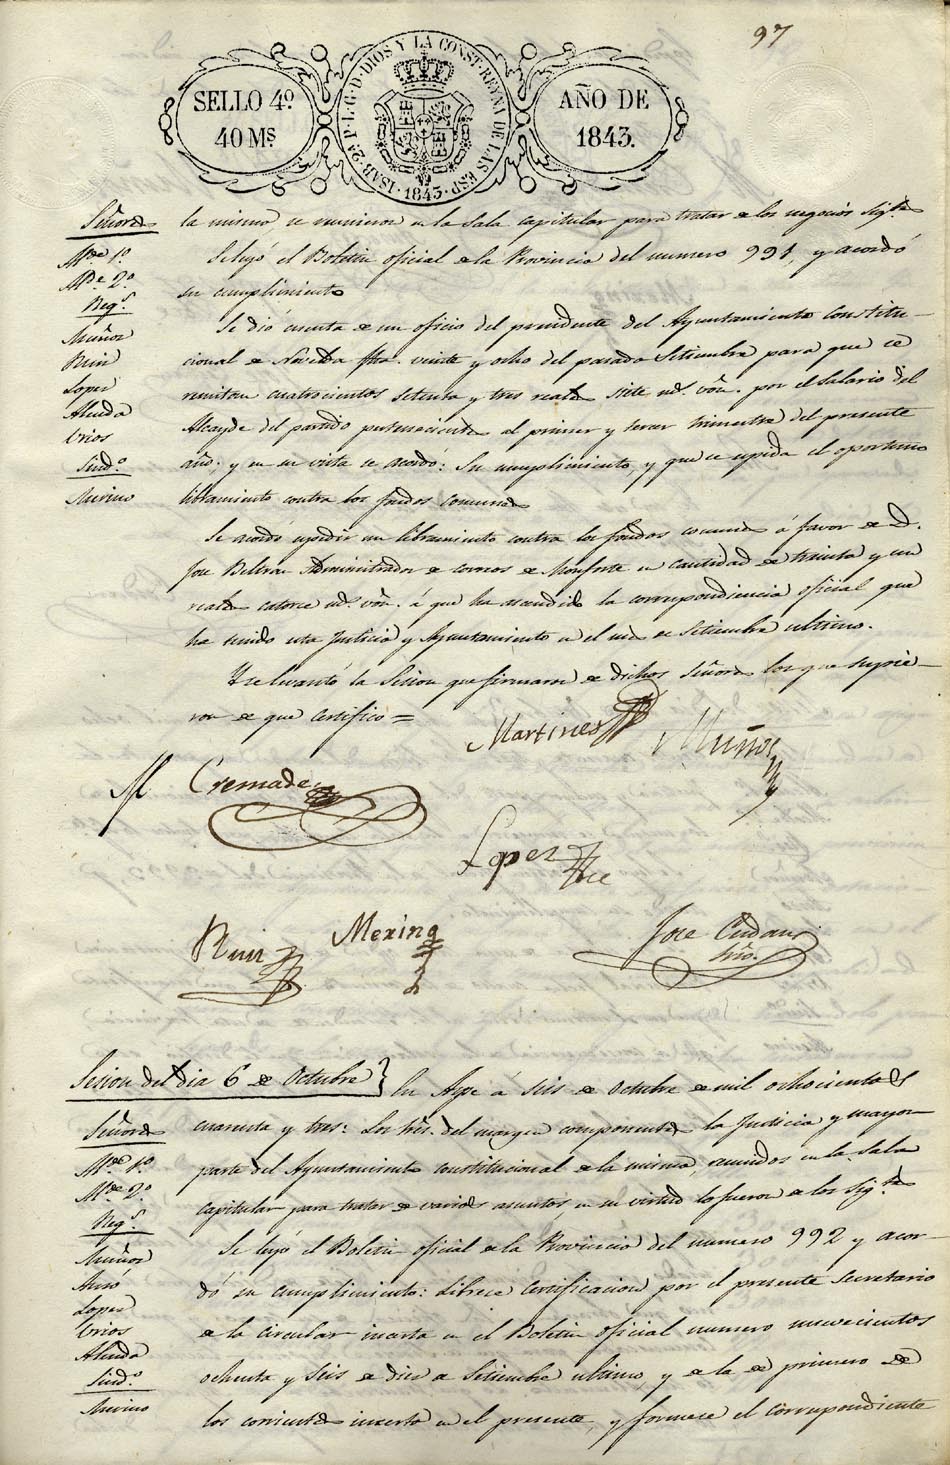 97
SELLO 4º
40 Ms
ISAB. 2ª P. L. G. D. DIOS Y LA CONST. REYNA DE LAS ESP. 1843.
AÑO DE
1843.
Señores
Alde 1º
Alde 2º
Regs.
Muñoz
Ruiz
Lopez
Alenda
Urios
Sindº
Merino
la misma se reunieron en la Sala capitular para tratar de los negocios sigtes
Se leyó el Boletin oficial de la Provincia del numero 991, y acordó
su cumplimiento
Se dió cuenta de un oficio del presidente del Ayuntamiento constitu-
cional de Novelda fha. veinte y ocho del pasado Setiembre para que se
remitan cuatrocientos setenta y tres reales siete ms. von. por el salario del
Alcayde del partido perteneciente al primer y tercer trimestre del presente
año: y en su vista se acordó: Su cumplimiento, y que se espida el oportuno
libramiento contra los fondos comunes
Se acordó espedir un libramiento contra los fondos comunes á favor de D.
Jose Beltran Administrador de correos de Monforte en cantidad de treinta y un
reales catorce ms. von. á que ha ascendido la correspondiencia oficial que
ha tenido esta Justicia y Ayuntamiento en el mes de Setiembre ultimo.
Y se levantó la Sesion que firmaron de dichos Señores los que supie-
ron de que certifico =
Martines
Muños
Cremades
Lopez
Ruiz
Merino
Jose
Srio.
Sesion del dia 6 de Octubre
En Aspe á seis de Octubre de mil ochocientos
Señores
Alde 1º
Alde 2º
Regs.
Muñoz
Lopez
Urios
Alenda
Sindº
Merino
cuarenta y tres: Los Sres. del margen componentes la Justicia y mayor
parte del Ayuntamiento constitucional de la misma, reunidos en la Sala
capitular para tratar de varios asuntos, en su virtud lo fueron de los sigtes
Se leyó el Boletin oficial de la Provincia del numero 992 y acor-
dó su cumplimiento: Librese certificacion por el presente secretario
de la circular inserta en el Boletin oficial numero nuevecientos
ochenta y seis de diez de Setiembre ultimo, y de la de primero de
los corrientes inserta en el presente, y formese el correspondiente